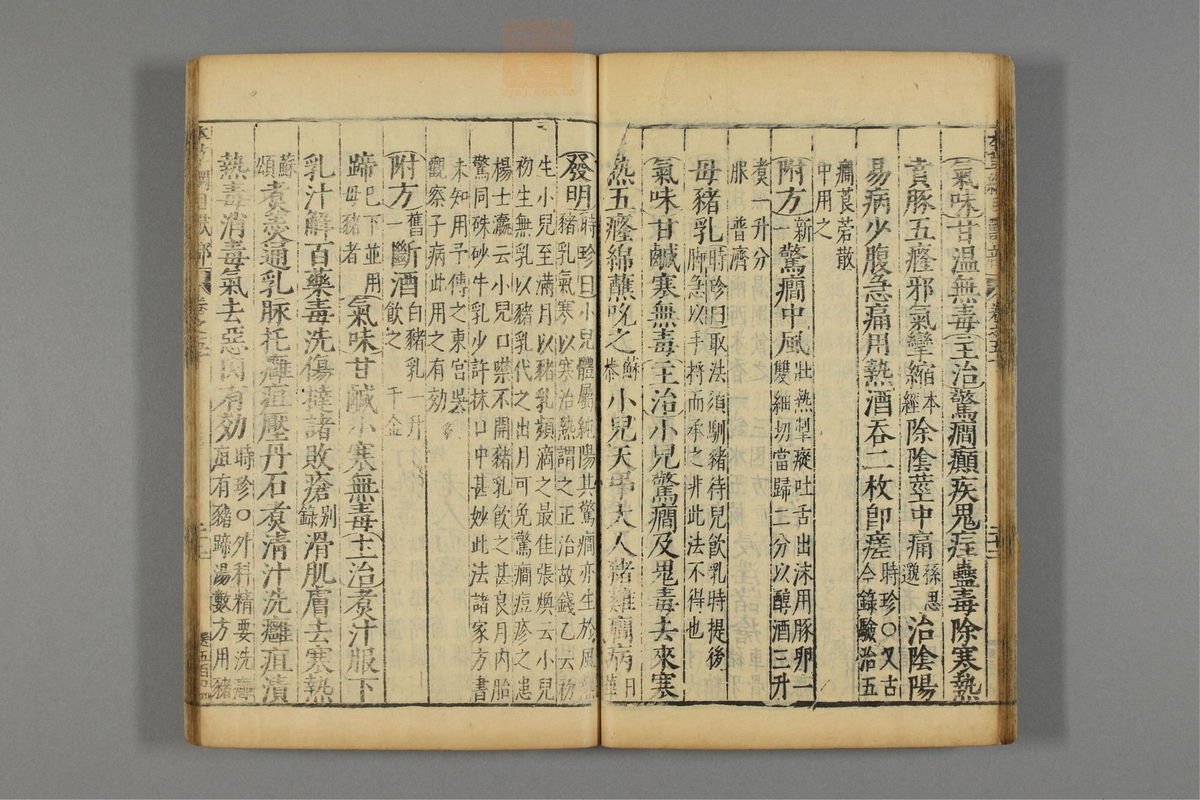 氣味甘溫無毒主治驚癇癲疾鬼疰蠱毒除寒熱
賁豚五癃邪氣攣縮本經除陰莖中痛孫思邈治陰陽
易病少腹急痛用熱酒吞二枚卽瘥時珍○又古今錄驗治五
癇莨菪散中用之
附方新一驚癇中風壯熱掣瘲吐舌出沫用豚卵一雙細切當歸二分以醇酒三升
煑一升分服普濟
母豬乳時珍曰取法須馴豬待兒飲乳時提後脚急以手捋而承之非此法不得也
氣味甘鹹寒無毒主治小兒驚癇及鬼毒去來寒
熱五癃綿蘸吮之蘇恭小兒天弔大人豬雞癇病日華
發明時珍曰小兒體屬純陽其驚癇亦生於風熱豬乳氣寒以寒治熱謂之正治故錢乙云初
生小兒至滿月以豬乳頻滴之最佳張煥云小兒初生無乳以豬乳代之出月可免驚癇痘疹之患
楊士瀛云小兒口噤不開豬乳飲之甚良月內胎驚同硃砂牛乳少許抹口中甚妙此法諸家方書
未知用予傳之東宮吳觀察子病此用之有効
附方舊一斷酒白豬乳一升飲之千金
蹄已下並用母豬者氣味甘鹹小寒無毒主治煑汁服下
乳汁解百藥毒洗傷撻諸敗瘡別錄滑肌膚去寒熱
蘇頌煑羮通乳脉托癰疽壓丹石煑清汁洗癰疽漬
熱毒消毒氣去惡肉有効時珍○外科精要洗癰疽有豬蹄湯數方用豬